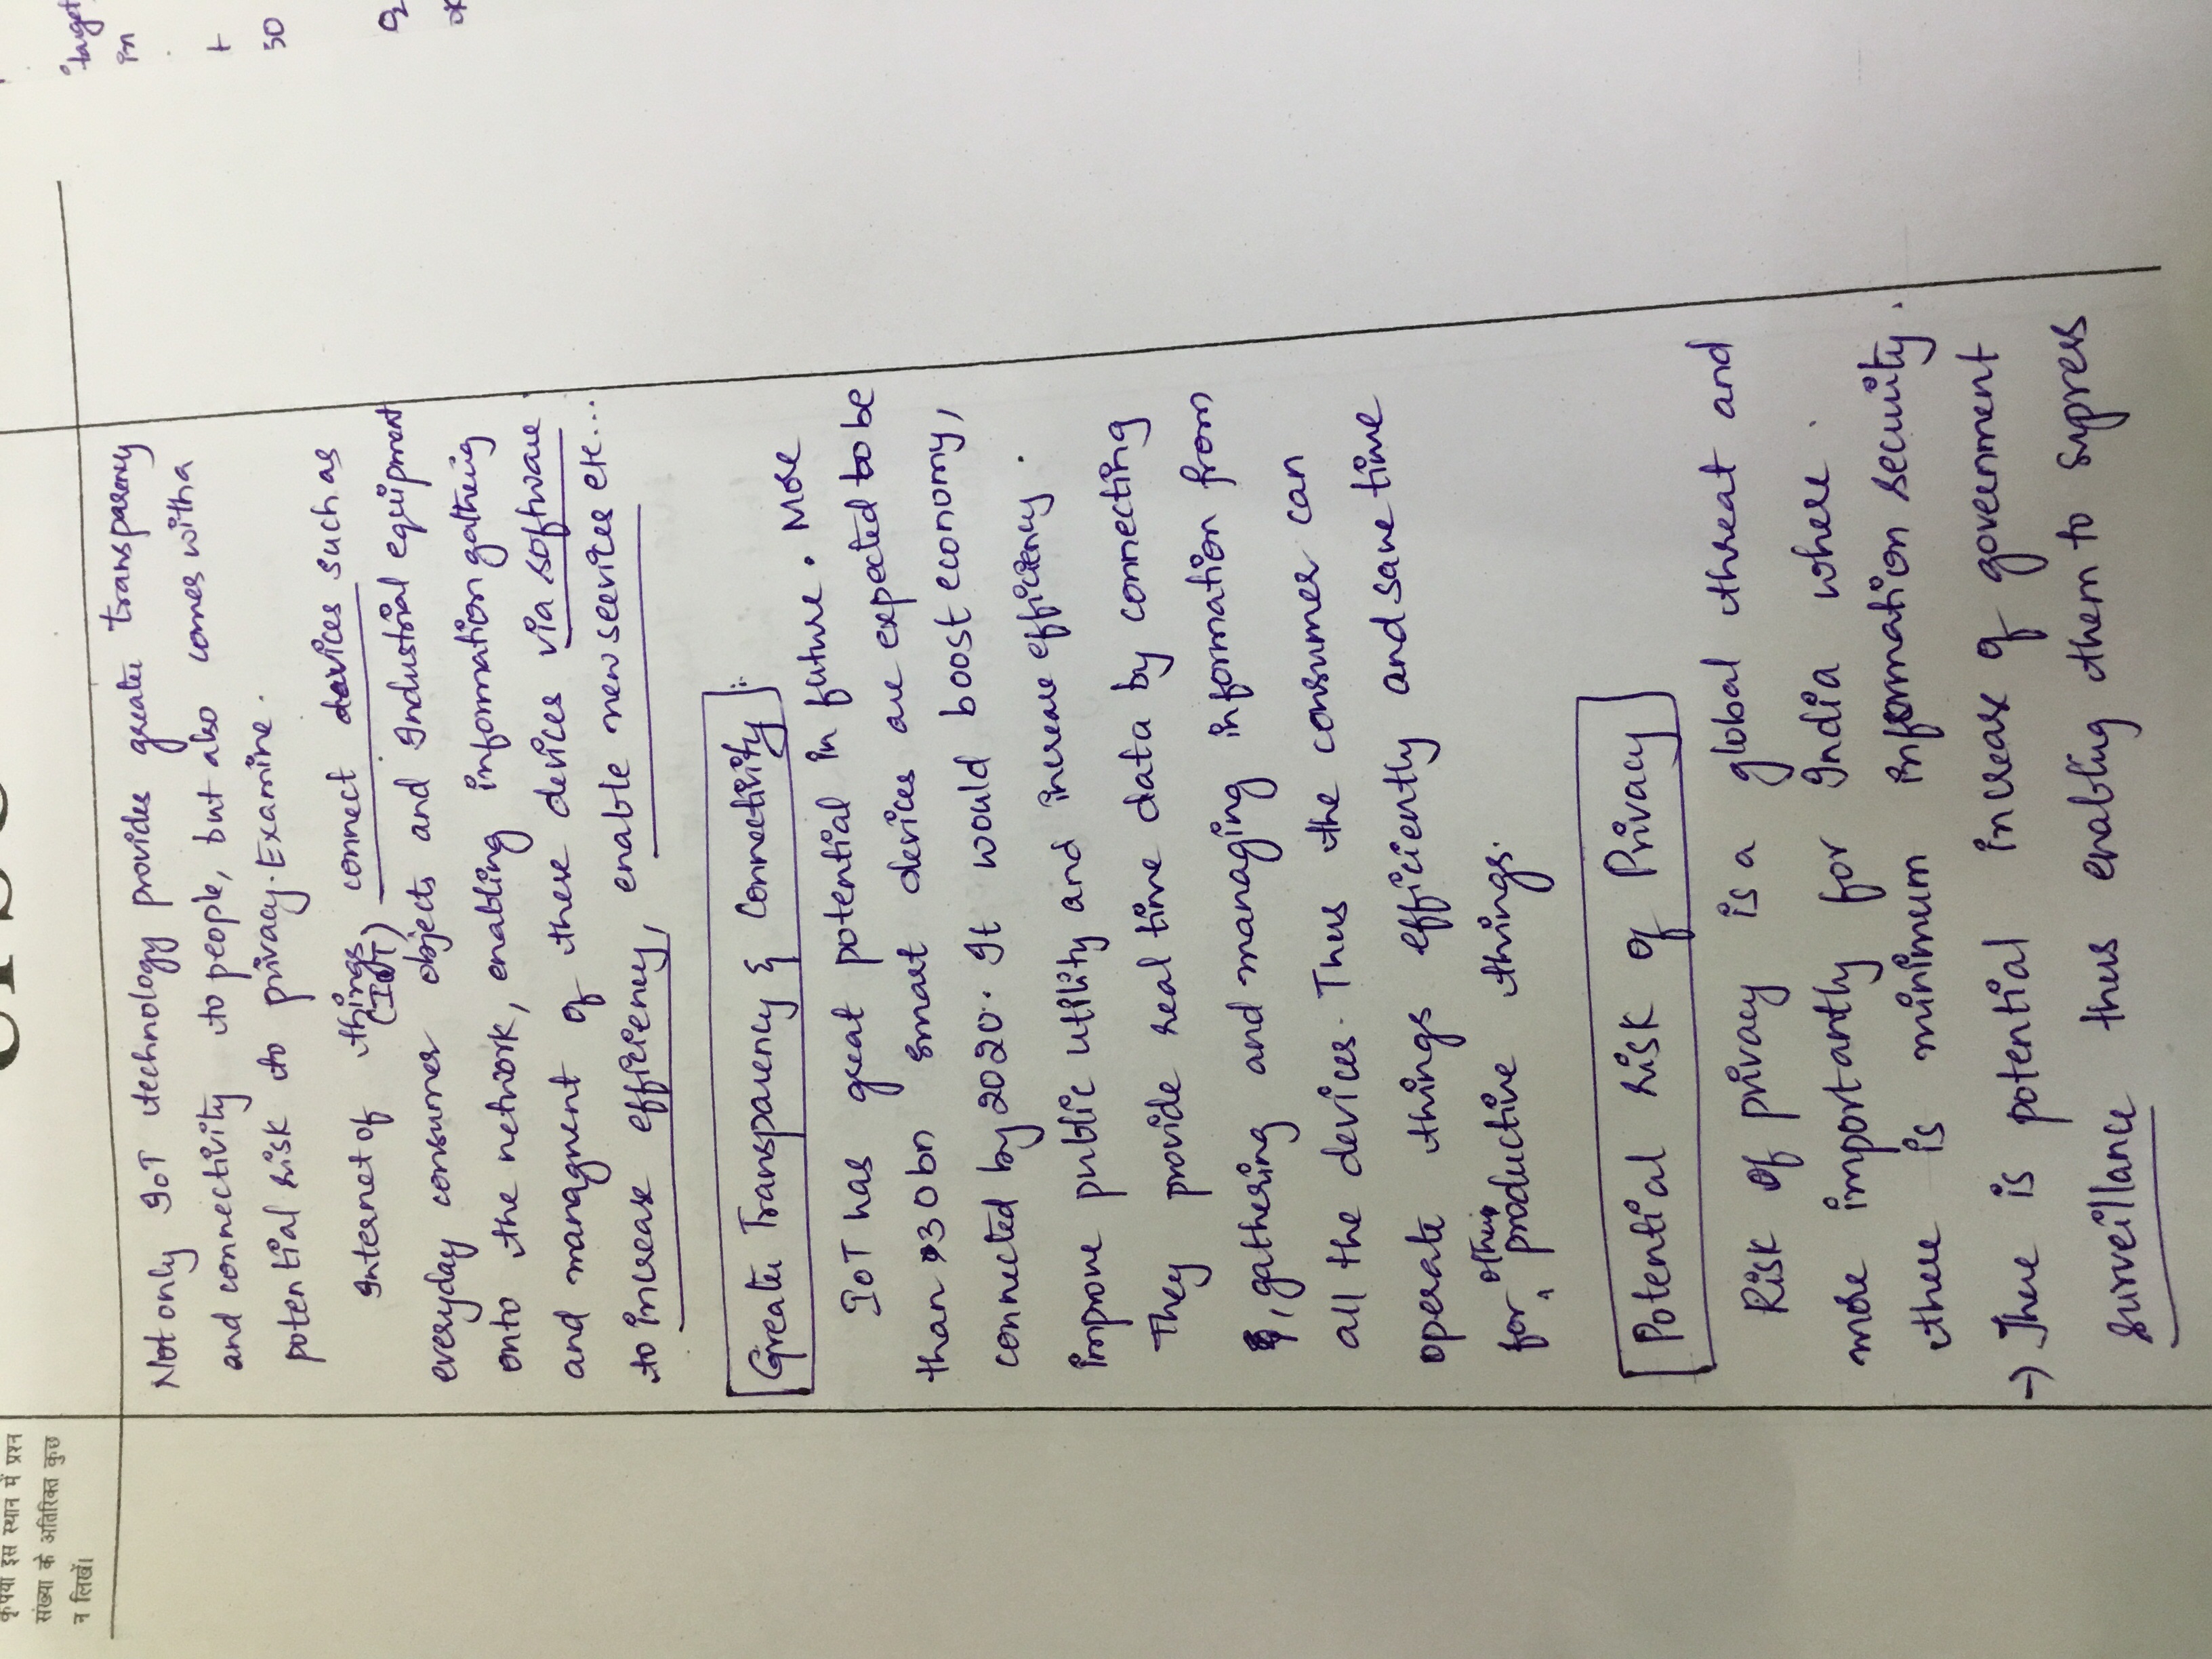 कृपया इस स्थान में प्रश्न
संख्या के अतिरिक्त कुछ
न लिखें।
Not only IoT technology provides greater transparency
and connectivity to people, but also comes with a
potential risk to privacy. Examine.
Internet of things connect devices such as
(IoT)
everyday consumer objects and Industrial equipment
onto the network, enabling information gathering
and managment of these devices via software
to increase efficiency, enable new services etc...
Greater Transparency & Connectivity :
IoT has great potential in future. More
than 30bn smart devices are expected to be
connected by 2020. It would boost economy,
improve public utility and increase efficiency.
They provide real time data by connecting
, gathering and managing information from
all the devices. Thus the consumer can
operate things efficiently and save time
for other productive things.
Potential risk of Privacy
Risk of privacy is a global threat and
more importantly for India where
there is minimum information security.
→ There is potential increase of government
surveillance thus enabling them to supress
target
in
t
so